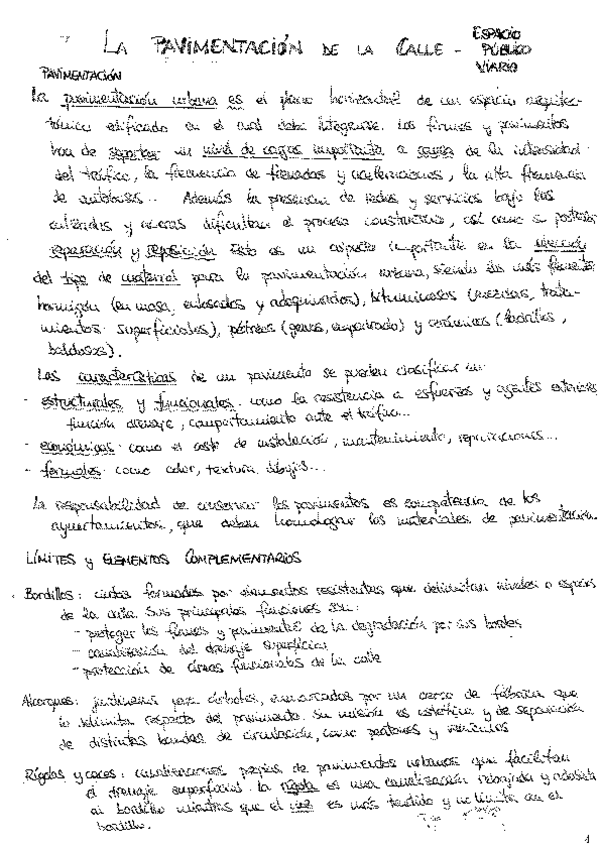 LA PAVIMENTACIÓN DE LA CALLE - ESPACIO PÚBLICO VIARIO
PAVIMENTACIÓN
La pavimentación urbana es el plano horizontal de un espacio arquitec-
tónico edificado en el cual debe integrarse. Los firmes y pavimentos
han de soportar un nivel de cargas importante a causa de la intensidad
del tráfico, la frecuencia de frenadas y aceleraciones, la alta frecuencia
de autobuses... Además la presencia de redes y servicios bajo las
calzadas y aceras dificultan el proceso constructivo, así como su posterior
reparación y reposición. Esto es un aspecto importante en la elección
del tipo de material para la pavimentación urbana, siendo los más frecuentes
hormigón (en masa, enlosados y adoquinados), bituminosos (mezclas, trata-
mientos superficiales), pétreos (gravas, empedrado) y cerámicos (ladrillos,
baldosas).
Las características de un pavimento se pueden clasificar en:
- estructurales y funcionales: como la resistencia a esfuerzos y agentes exteriores
función drenaje, comportamiento ante el tráfico...
- económicas: como el coste de instalación, mantenimiento, reparaciones...
- formales: como color, textura, dibujos...
La responsabilidad de conservar los pavimentos es competencia de los
ayuntamientos, que deben homologar los materiales de pavimentación.
LÍMITES y ELEMENTOS COMPLEMENTARIOS
Bordillos: cintas formadas por elementos resistentes que delimitan niveles o espacios
de la calle. Sus principales funciones son:
- proteger los firmes y pavimentos de la degradación por sus bordes
- canalización del drenaje superficial
- protección de áreas funcionales de la calle
Alcorques: jardineras para árboles, enmarcados por un cerco de fábrica que
lo delimita respecto del pavimento. Su misión es estética y de separación
de distintas bandas de circulación, como peatones y vehículos
Rígolas y caces: canalizaciones propias de pavimentos urbanos que facilitan
el drenaje superficial. La rígola es una canalización rehundida y adosada
al bordillo mientras que el caz es más tendido y no limita con el
bordillo.
1